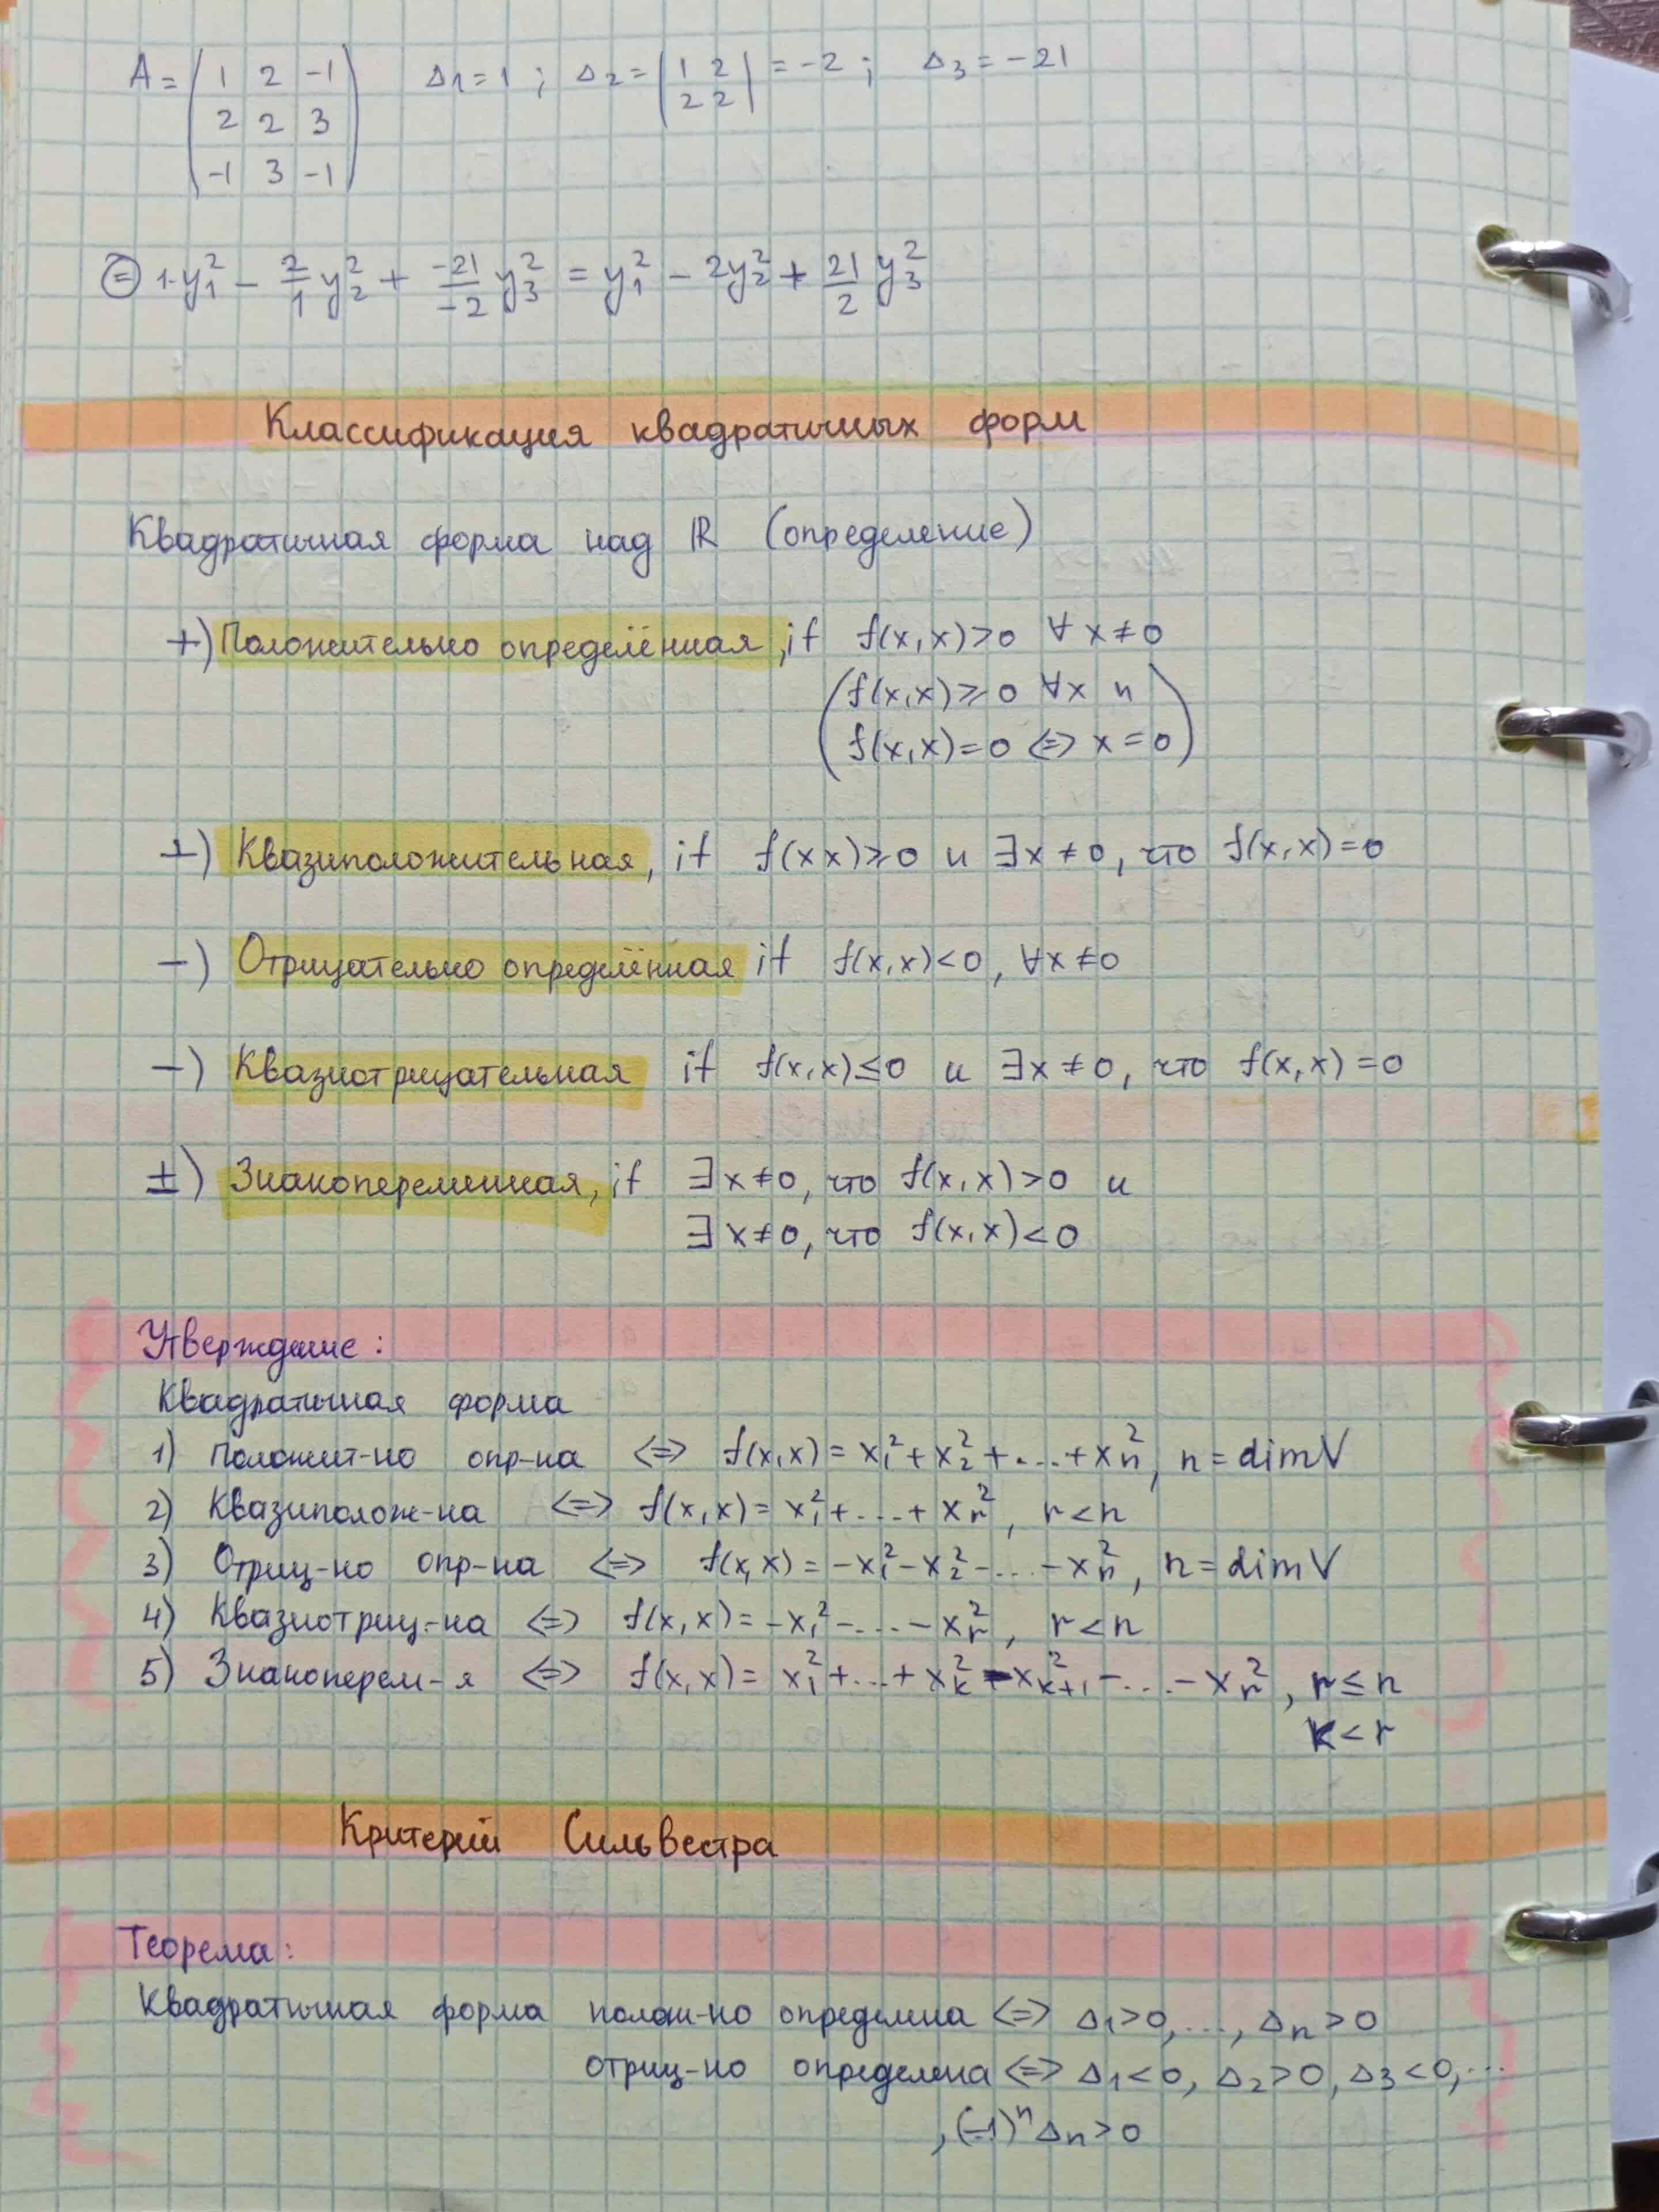 A = ( 1 2 -1    Δ1 = 1 ; Δ2 = | 1 2 | = -2 ; Δ3 = -21
2 2 3    2 2
-1 3 -1 )
⊜ 1·y₁² - 2/1 y₂² + -21/-2 y₃² = y₁² - 2y₂² + 21/2 y₃²
Классификация квадратичных форм
Квадратичная форма над ℝ (определение)
+) Положительно определённая, if f(x,x)>0 ∀x≠0
(f(x,x)⩾0 ∀x и
f(x,x)=0 ⇔ x=0)
+) Квазиположительная, if f(xx)⩾0 и ∃x≠0, что f(x,x)=0
−) Отрицательно определённая if f(x,x)<0, ∀x≠0
−) Квазиотрицательная if f(x,x)≤0 и ∃x≠0, что f(x,x)=0
±) Знакопеременная, if ∃x≠0, что f(x,x)>0 и
∃x≠0, что f(x,x)<0
Утверждение:
Квадратичная форма
1) Положит-но опр-на ⇔ f(x,x) = x₁² + x₂² + ... + xₙ², n = dimV
2) Квазиполож-на ⇔ f(x,x) = x₁² + ... + xᵣ², r<n
3) Отриц-но опр-на ⇔ f(x,x) = -x₁² - x₂² - ... - xₙ², n = dimV
4) Квазиотриц-на ⇔ f(x,x) = -x₁² - ... - xᵣ², r<n
5) Знакоперем-я ⇔ f(x,x) = x₁² + ... + xₖ² - xₖ₊₁² - ... - xᵣ², r≤n
k<r
Критерий Сильвестра
Теорема:
Квадратичная форма полож-но определена ⇔ Δ1>0, ..., Δn>0
отриц-но определена ⇔ Δ1<0, Δ2>0, Δ3<0, ...
, (-1)ⁿ Δn>0